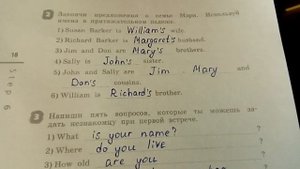 2 Закончи предложения о семье Мэри. Используй
имена в притяжательном падеже.
1) Susan Barker is William's wife.
2) Richard Barker is Margaret's husband.
3) Jim and Don are Mary's brothers.
4) Sally is John's sister.
5) John and Sally are Jim, Mary and
Don's cousins.
6) William is Richard's brother.
18
Step 6
3 Напиши пять вопросов, которые ты можешь за-
дать незнакомцу при первой встрече.
1) What is your name? ?
2) Where do you live ?
3) How old are you ?